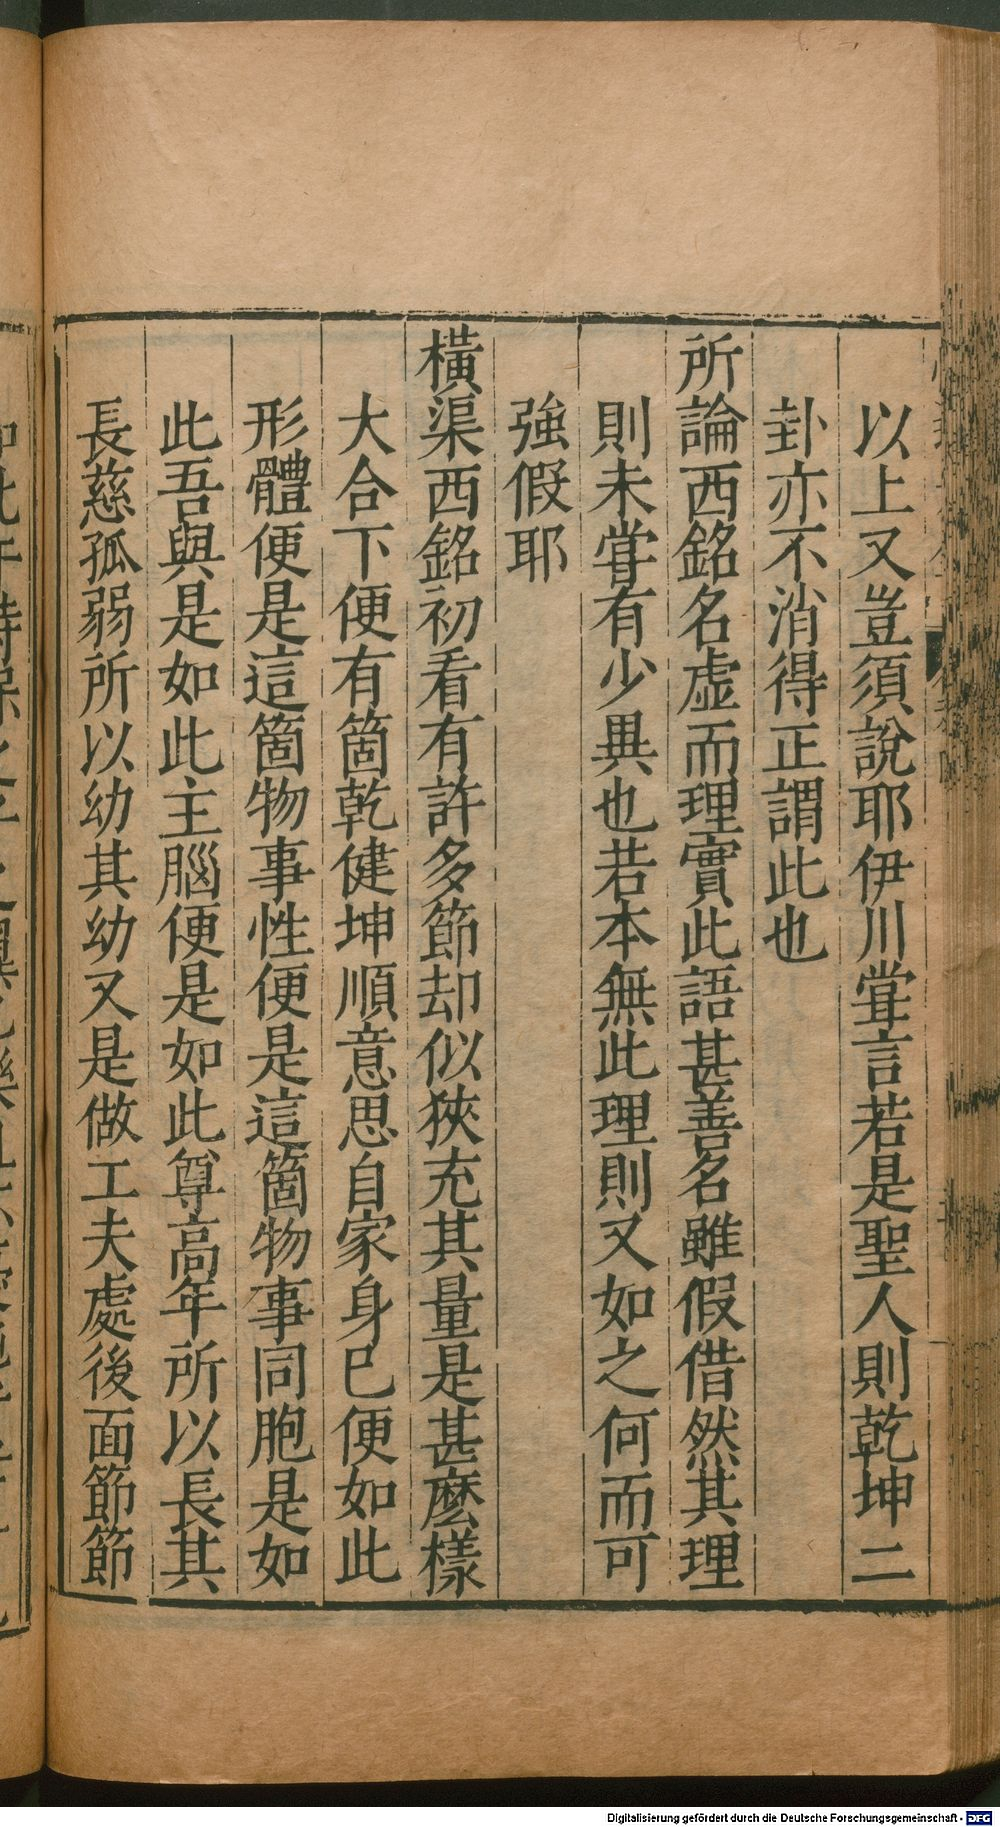 以上又豈須說耶伊川甞言若是聖人則乾坤二
卦亦不消得正謂此也
所論西銘名虛而理實此語甚善名雖假借然其理
則未甞有少異也若本無此理則又如之何而可
強假耶
橫渠西銘初看有許多節却似狹充其量是甚麽樣
大合下便有箇乾健坤順意思自家身已便如此
形體便是這箇物事性便是這箇物事同胞是如
此吾與是如此主腦便是如此尊高年所以長其
長慈孤弱所以幼其幼又是做工夫處後面節節
Digitalisierung gefördert durch die Deutsche Forschungsgemeinschaft - DFG